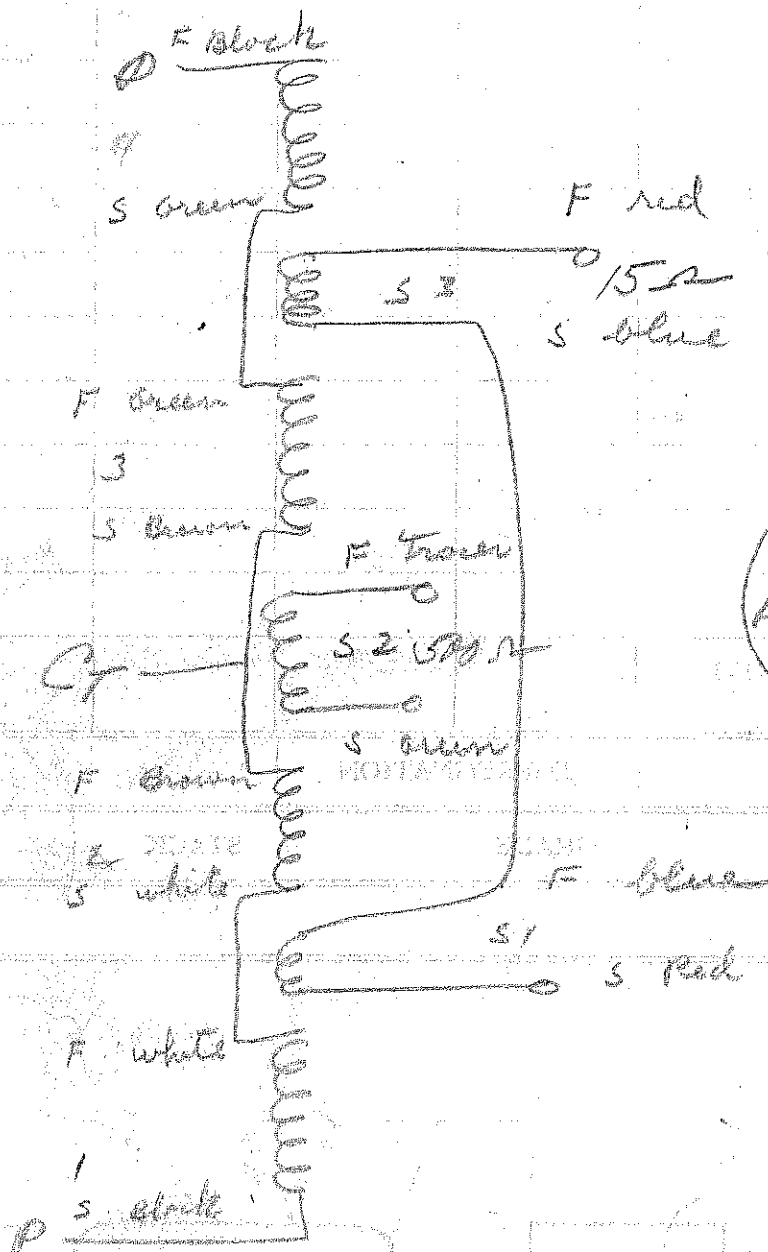 F Black
P
4
S Green
F red
S 3
15 Ω
S blue
F Green
3
S Brown
F Tracer
S 2 500 Ω
S Green
F Brown
2
S white
F blue
S 1
S Red
F white
1
S black
P